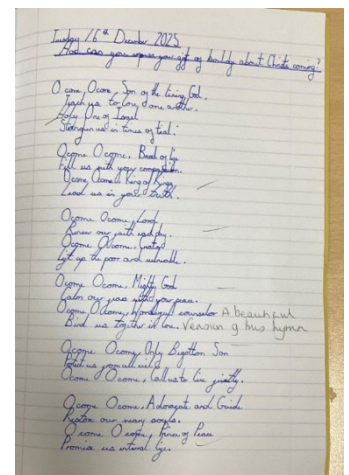 Tuesday 16th December 2025
How can you express your gift of knowledge about Christ's coming?
O come, O come, Son of the living God.
Teach us to love one another.
Holy One of Israel
Strengthen us in times of trial.
O come, O come, Bread of life
Fill us with your compassion.
O come, O come, King of Kings
Lead us in your truth.
O come, O come, Lord
Renew our faith each day.
O come, O come,
Lift up the poor and vulnerable.
O come, O come, Mighty God
Calm our fears with your peace.
O come, O come, Wonderful counselor A beautiful
Bind us together in love. Version of this hymn
O come, O come, Only Begotten Son
Protect us from all evil
O come, O come, Call us to live justly.
O come, O come, Advocate and Guide
Restore our weary souls.
O come, O come, Prince of Peace
Promise us eternal life.